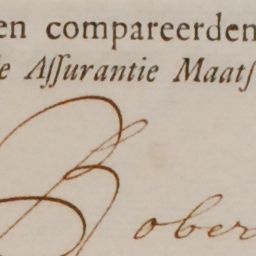 en compareerden
e Aſſurantie Maatſ
Rober